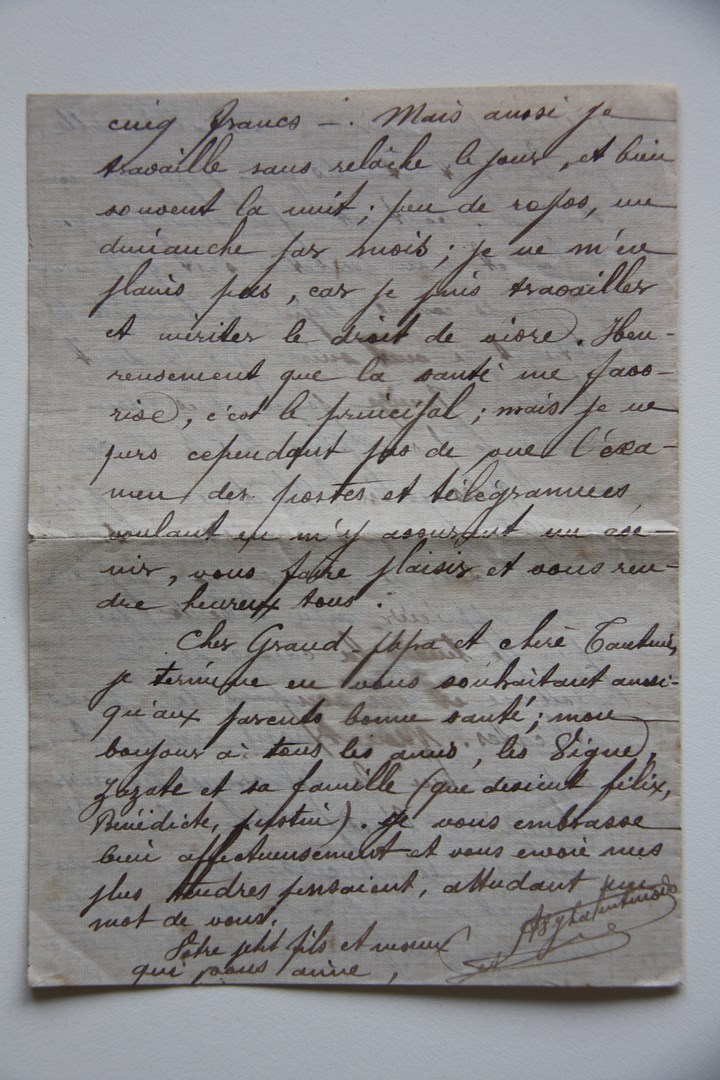 cinq francs —. Mais aussi je
travaille sans relâche le jour, et bien
souvent la nuit; peu de repos, un
dimanche par mois; je ne m'en
plains pas, car je puis travailler
et mériter le droit de vivre. Heu-
reusement que la santé me favo-
rise, c'est le principal; mais je ne
pers cependant pas de vue l'exa-
men des postes et télégrammes,
voulant en m'y assurant un ave
nir, vous faire plaisir et vous ren-
dre heureux tous.
Cher Grand-papa et chère Tantine,
je termine en vous souhaitant ainsi-
qu'aux parents bonne santé; mon
bonjour à tous les amis, les Vigne,
et sa famille (que devient félix,
Bénédicte, justin). Je vous embrasse
bien affectueusement et vous envoie mes
plus tendres pensaient, attendant un
mot de vous.
Votre ptit fils et neveux
qui vous aime,